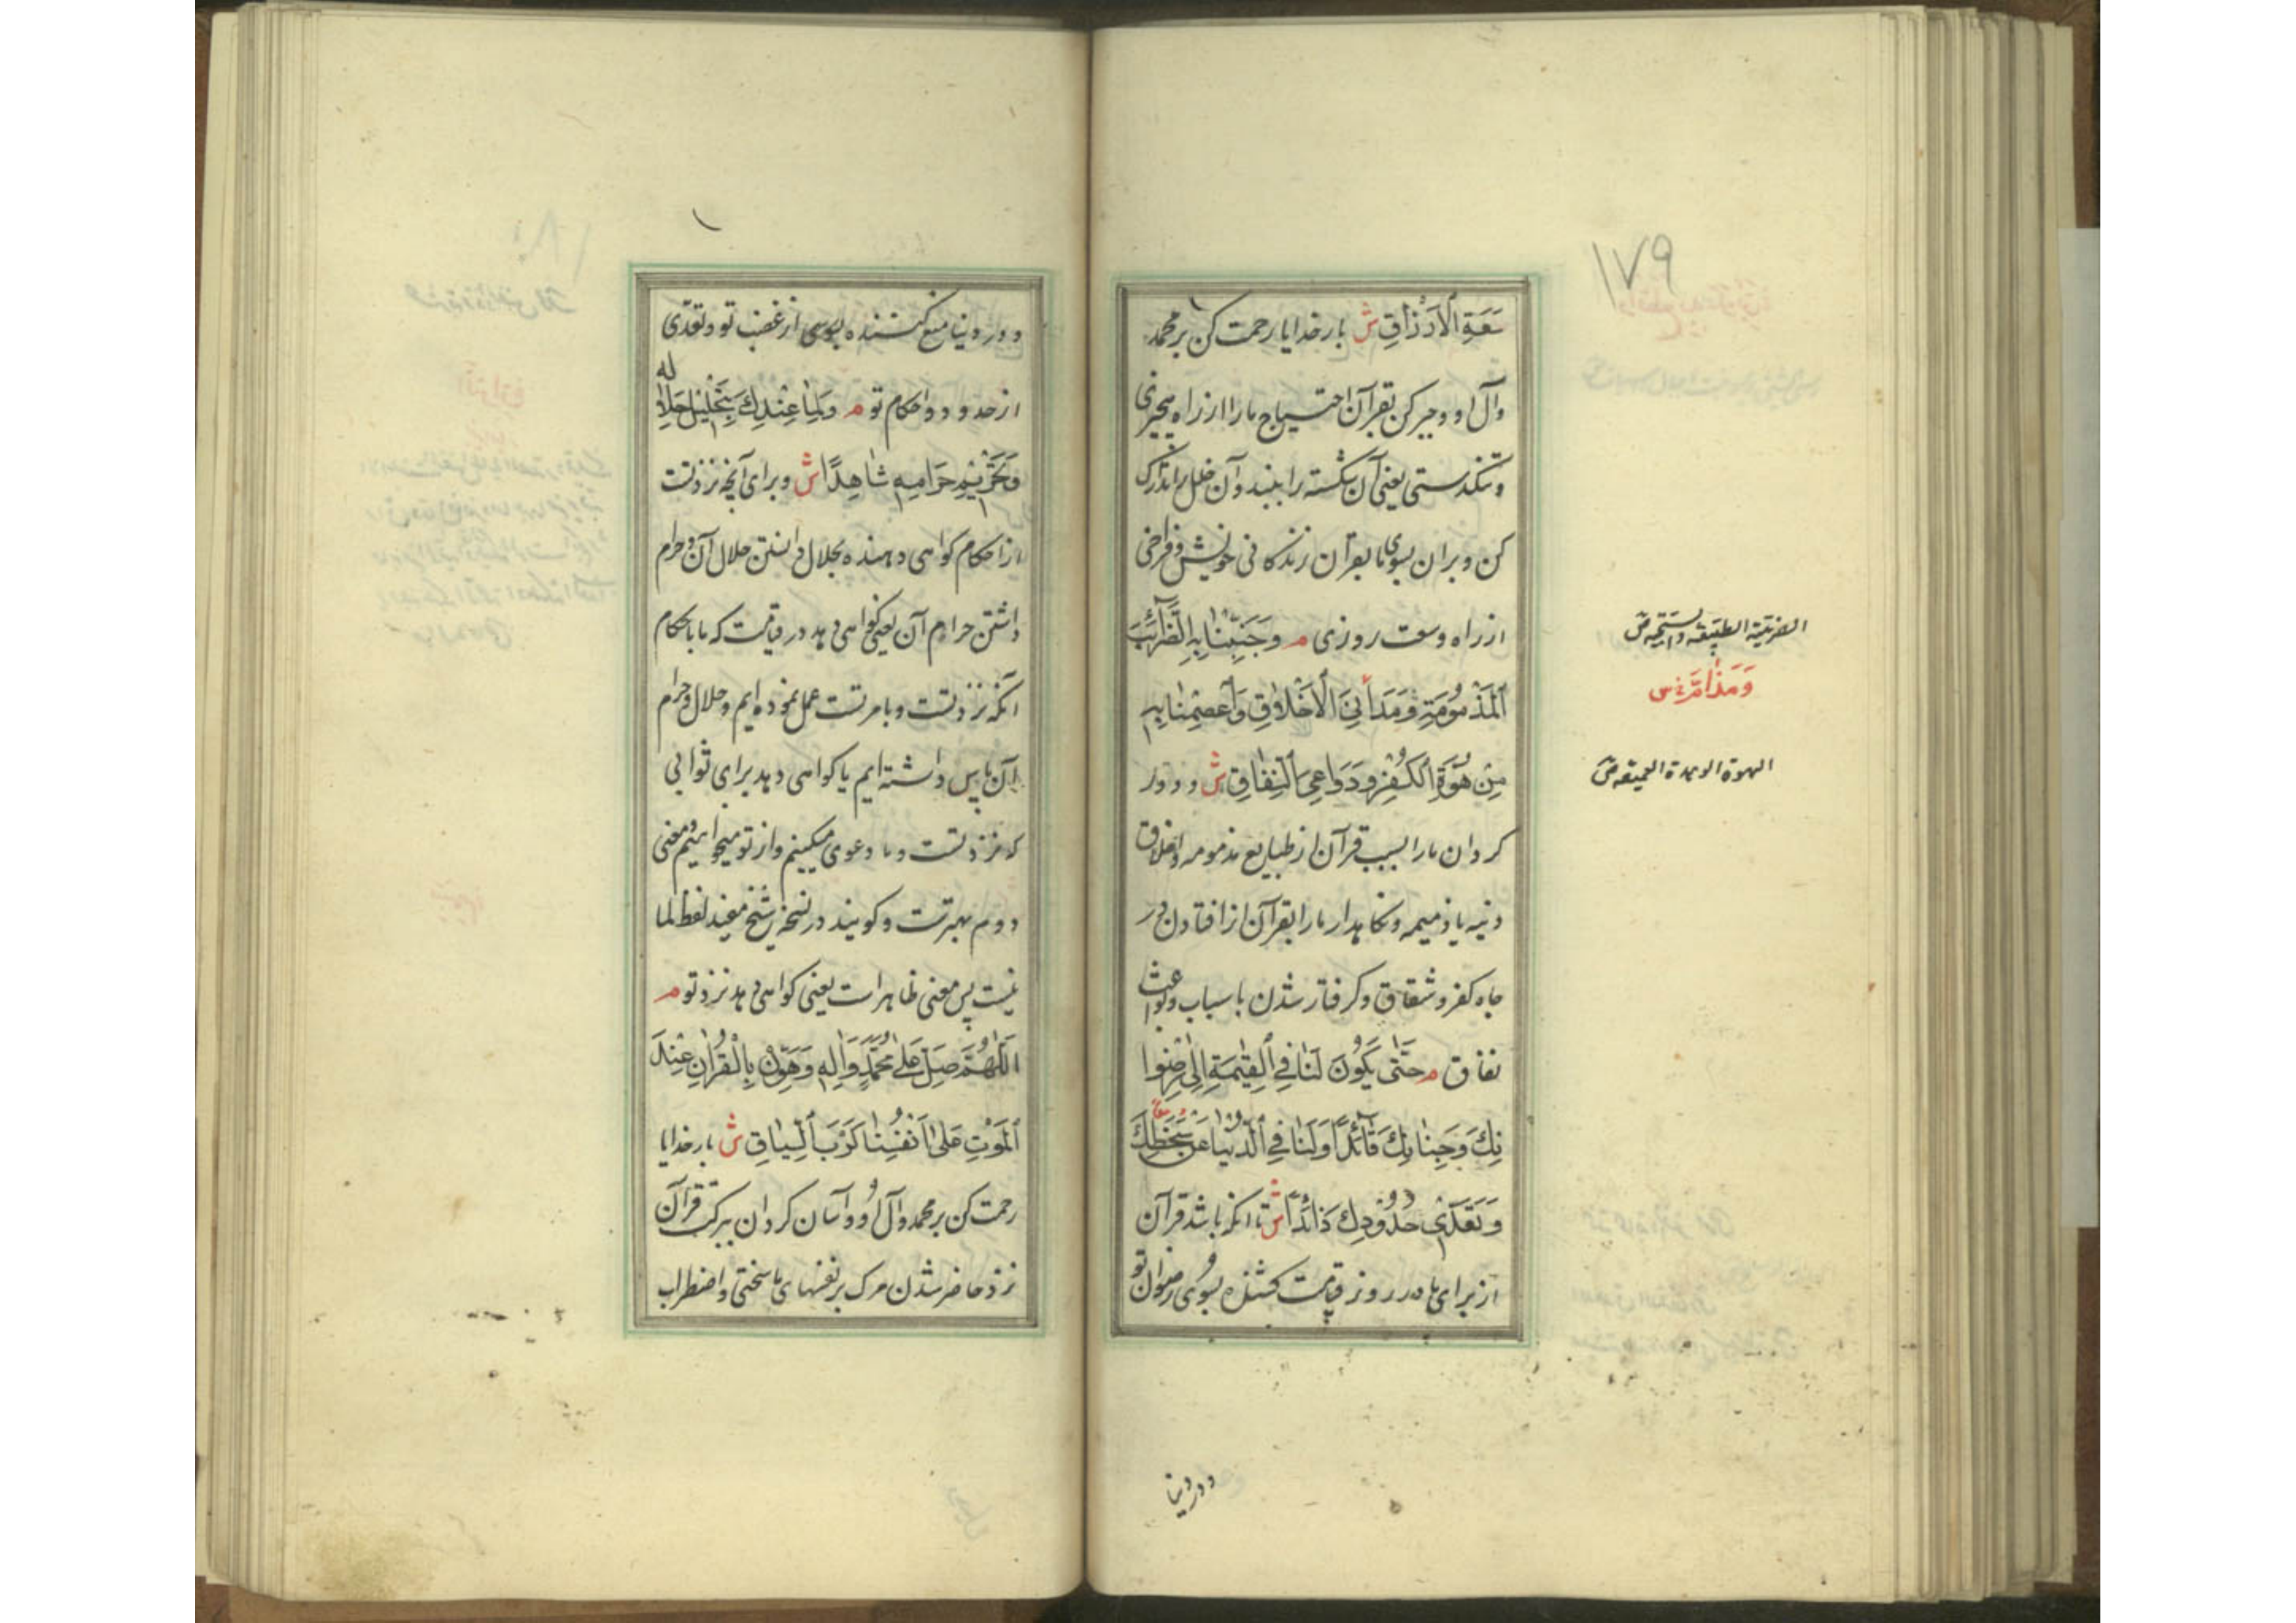 ۱۷۹
سَعَةِ الْأَرْزَاقِ ش بارخدایا رحمت کن بر محمد
وآل او و جبر کن بقرآن احتیاج ما را از راه بیچیزی
و تنکدستی یعنی آن شکسته را ببند و آن خلل را تدارک
کن و بران بسوی ما بقرآن زندکانی خوش و فراخی
از راه وسعت روزی م وَجَنِّبْنَا بِهِ الضَّرَائِبَ
الْمَذْمُومَةِ وَمَدَانِیَ الْأَخْلَاقِ وَاعْصِمْنَا بِهِ
مِنْ هُوَّةِ الْکُفْرِ وَدَوَاعِی النِّفَاقِ ش و دور
کردان ما را بسبب قرآن از طبایع مذمومه و اخلاق
دنیه یا ذمیمه و نکاهدار ما را بقرآن از افتادن در
چاه کفر و شقاق و کرفتار شدن باسباب و بواعث
نفاق م حَتَّی یَکُونَ لَنَا فِی الْقِیٰمَةِ إِلَی رِضْوَا
نِکَ وَجِنَانِکَ قَائِدًا وَلَنَا فِی الدُّنْیَا عَنْ سَخَطِکَ
وَتَعَدِّی حُدُودِکَ ذَائِدًا ش تا آنکه باشد قرآن
از برای ما در روز قیامت کشنده بسوی رضوان تو
الضریبة الطبیعة والسجیة ص
وَمَذَامَّ خ س
الهوة الوهدة العمیقة ص
و در دنیا
و در دنیا منع کننده بسوی از غضب تو و تعدی
از حدود و احکام تو م وَلِمَا عِنْدَکَ بِتَحْلِیلِ حَلَالِهِ
وَتَحْرِیمِ حَرَامِهِ شَاهِدًا ش و برای آنچه نزد تست
از احکام کواهی دهنده بحلال دانستن حلال آن و حرام
داشتن حرام آن یعنی کواهی دهد در قیامت که ما باحکام
آنکه نزد تست و بامر تست عمل نموده ایم و حلال و حرام
آن پاس داشته ایم یا کواهی دهد برای ثوابی
که نزد تست و ما دعوی میکنیم و از تو میخواهیم و معنی
دوم بهترست و کویند در نسخه شیخ مفید لفظ لما
نیست پس معنی ظاهر است یعنی کواهی دهد نزد تو م
اَللّٰهُمَّ صَلِّ عَلٰی مُحَمَّدٍ وَاٰلِهِ وَهَوِّنْ بِالْقُرْاٰنِ عِنْدَ
الْمَوْتِ عَلٰی اَنْفُسِنَا کَرْبَ السِّیَاقِ ش بارخدایا
رحمت کن بر محمد و آل او و آسان کردان ببرکت قرآن
نزد حاضر شدن مرک بر نفسهای ما سختی و اضطراب